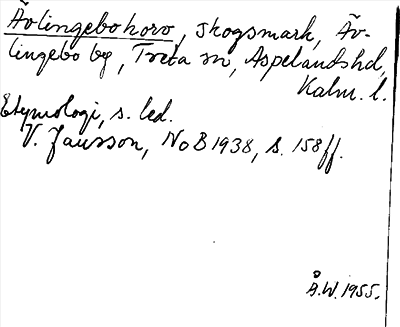 Ävlingebohorv, skogsmark, Äv-
lingebo by, Tveta sn, Aspelands hd,
Kalm. l.
Etymologi, s. led.
V. Jansson, NoB 1938, s. 158 ff.
Å.W. 1955.